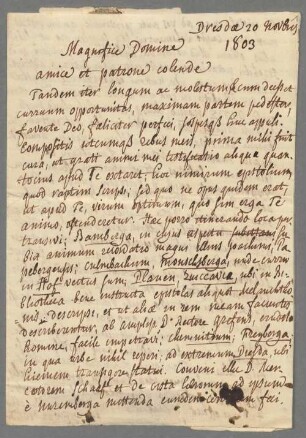 Dresdae 20 Novbris
1803
Magnifice Domine
amice et patrone colende
Tandem iter longum ac molestum, cum deesset
curruum opportunitas, maximam partem pedester,
favente Deo, feliciter perfeci, huc appuli.
Compositis utcunque rebus meis, prima mihi fuit
cura, ut grati animi mei aliqua quan-
tocius apud Te extaret, hoc minimum epistolium
quod raptim scripsi, sed quo ne opus quidem erat,
ut apud Te, virum optimum, quo sim erga Te
animo, ostenderetur. Hac porro itinerando loca per-
transivi; Bamberga, in cuius
bia animum recordatio magni illius Joachimi Pa-
pebergensis; culmbachium, unde currum
in Hof vectus sum, Plaven, Zviccavia, ubi in Bi-
bliotheca bene instructa epistolas aliquot Melanchtho-
nis descripsi, et ut aliae in rem meam facientes
describerentur, ab ampliss D. Rectore erudito
homine, facile impetravi; chemnitium; Freyberga,
in qua urbe nihil reperi; ad extremum Dresda, ubi
hiemem transigere statui. Conveni ille D. Rec-
torem et de cista librorum ad ipsum
e Nurenberga mittenda eundem feci.